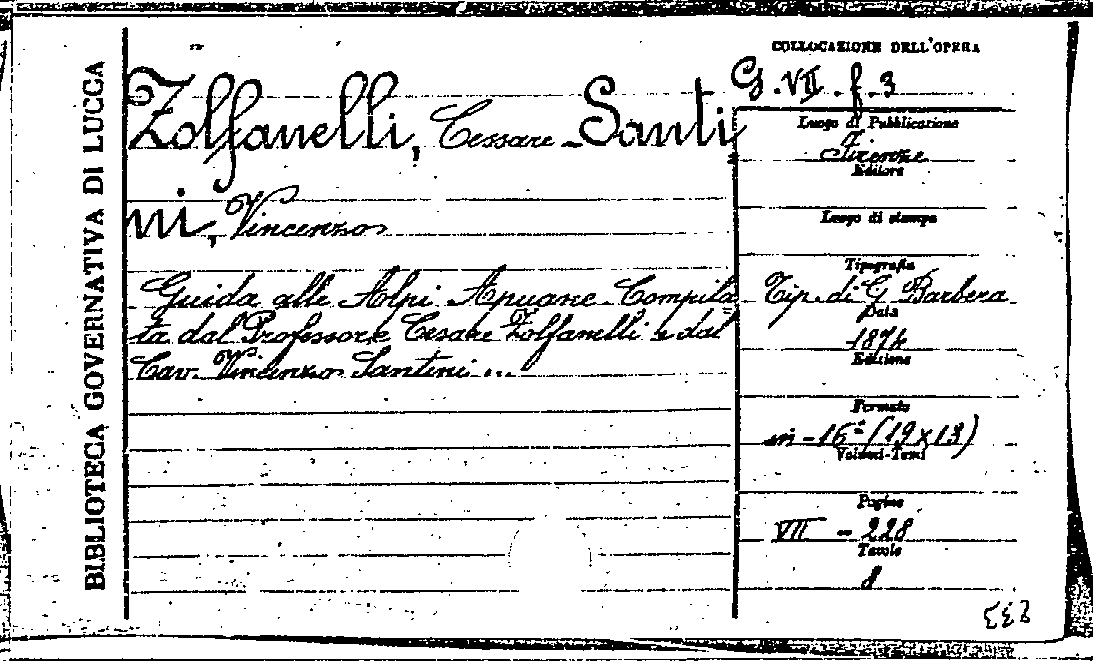 BIBLIOTECA GOVERNATIVA DI LUCCA
COLLOCAZIONE DELL'OPERA
G. VII. f. 3
Zolfanelli, Cessare - Santi
ni, Vincenzo
Guida alle Alpi Apuane Compila
ta dal Professore Cesare Zolfanelli e dal
Cav. Vincenzo Santini ...
Luogo di Pubblicazione
Firenze
Editore
Luogo di stampa
Tipografia
Tip. di G. Barbera
Data
1874
Edizione
Formato
in-16º (19x13)
Volumi-Tomi
Pagine
VII - 228
Tavole